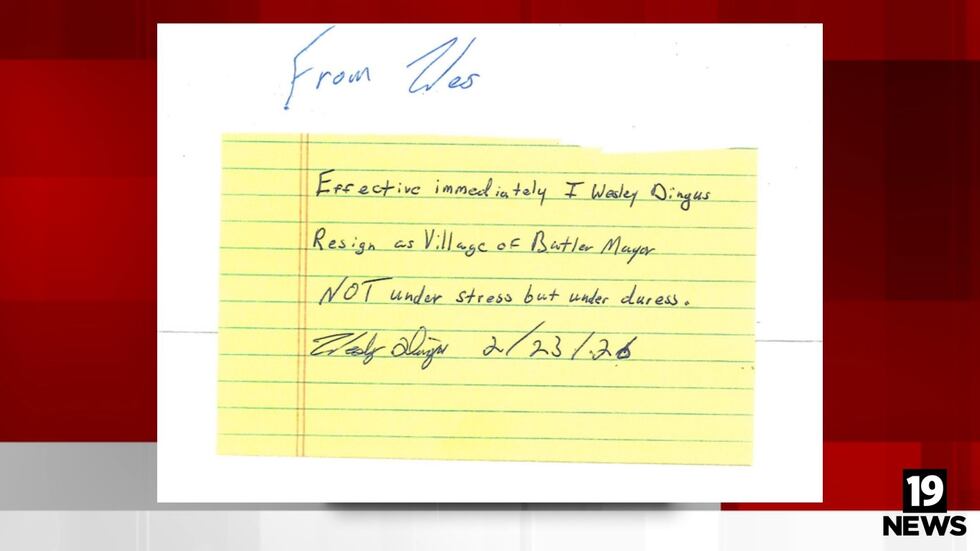 From Wes
Effective immediately I Wesley Dingus
Resign as Village of Butler Mayor
NOT under stress but under duress.
Wesley Dingus 2/23/26
19
NEWS